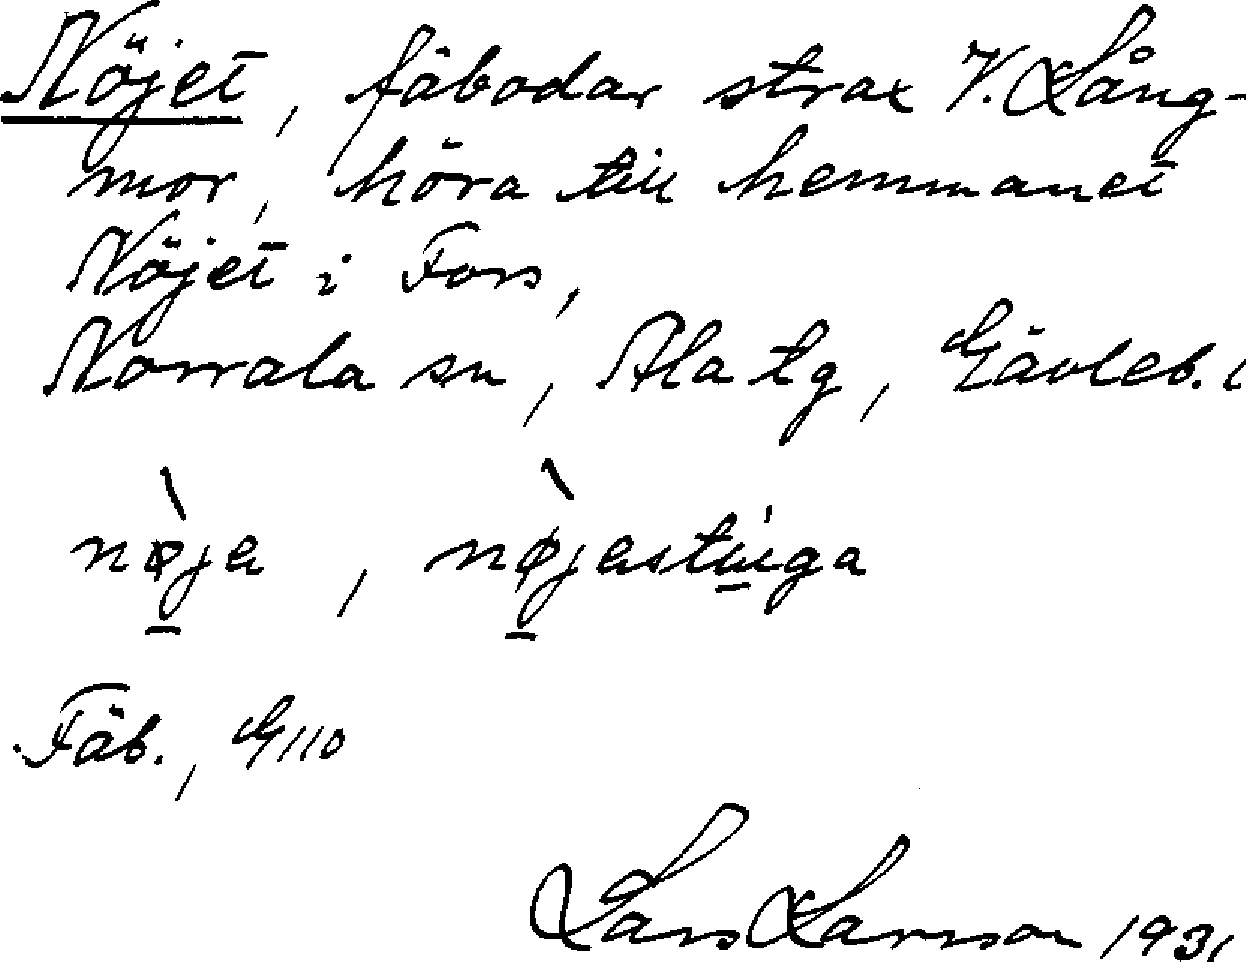 Nöjet, fäbodar strax V. Lång-
mor, höra till hemmanet
Nöjet i Fors,
Norrala sn, Ala tg, Gävleb. l
nø̀ja, nø̀jastúga
Fäb., G110
Lars Larsson 1931